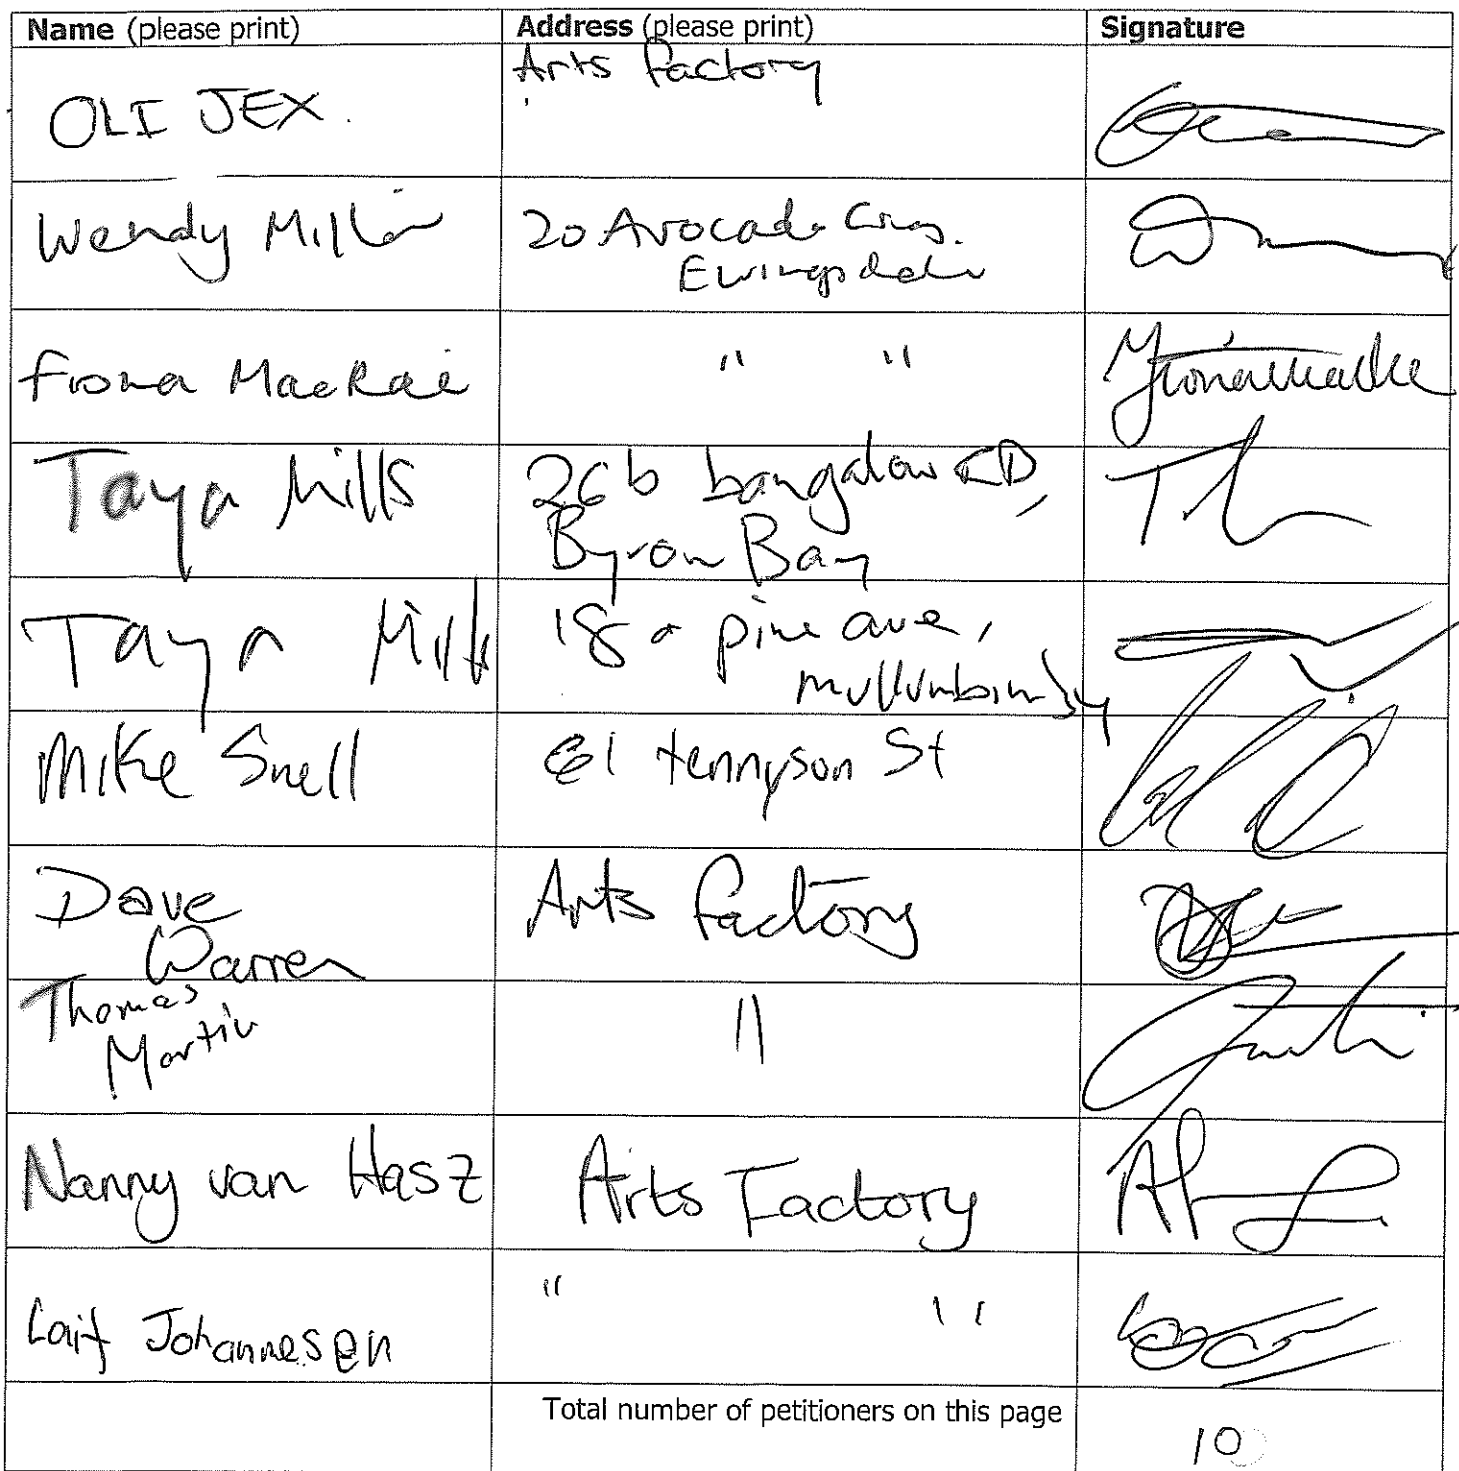 Name (please print) Address (please print) Signature
Arts factory
OLI JEX.
Wendy Miller 20 Avocado Cres.
Ewingsdale
Fiona MacRae " "
Taya Mills 26 b bangalow RD,
Byron Bay
Taya Mills 18 a pine ave,
mullumbimby
Mike Snell 61 tennyson St
Dave Arts factory
Warren
Thomas
Martin "
Nanny van Hasz Arts Factory
" "
Laif Johannesen
Total number of petitioners on this page
10